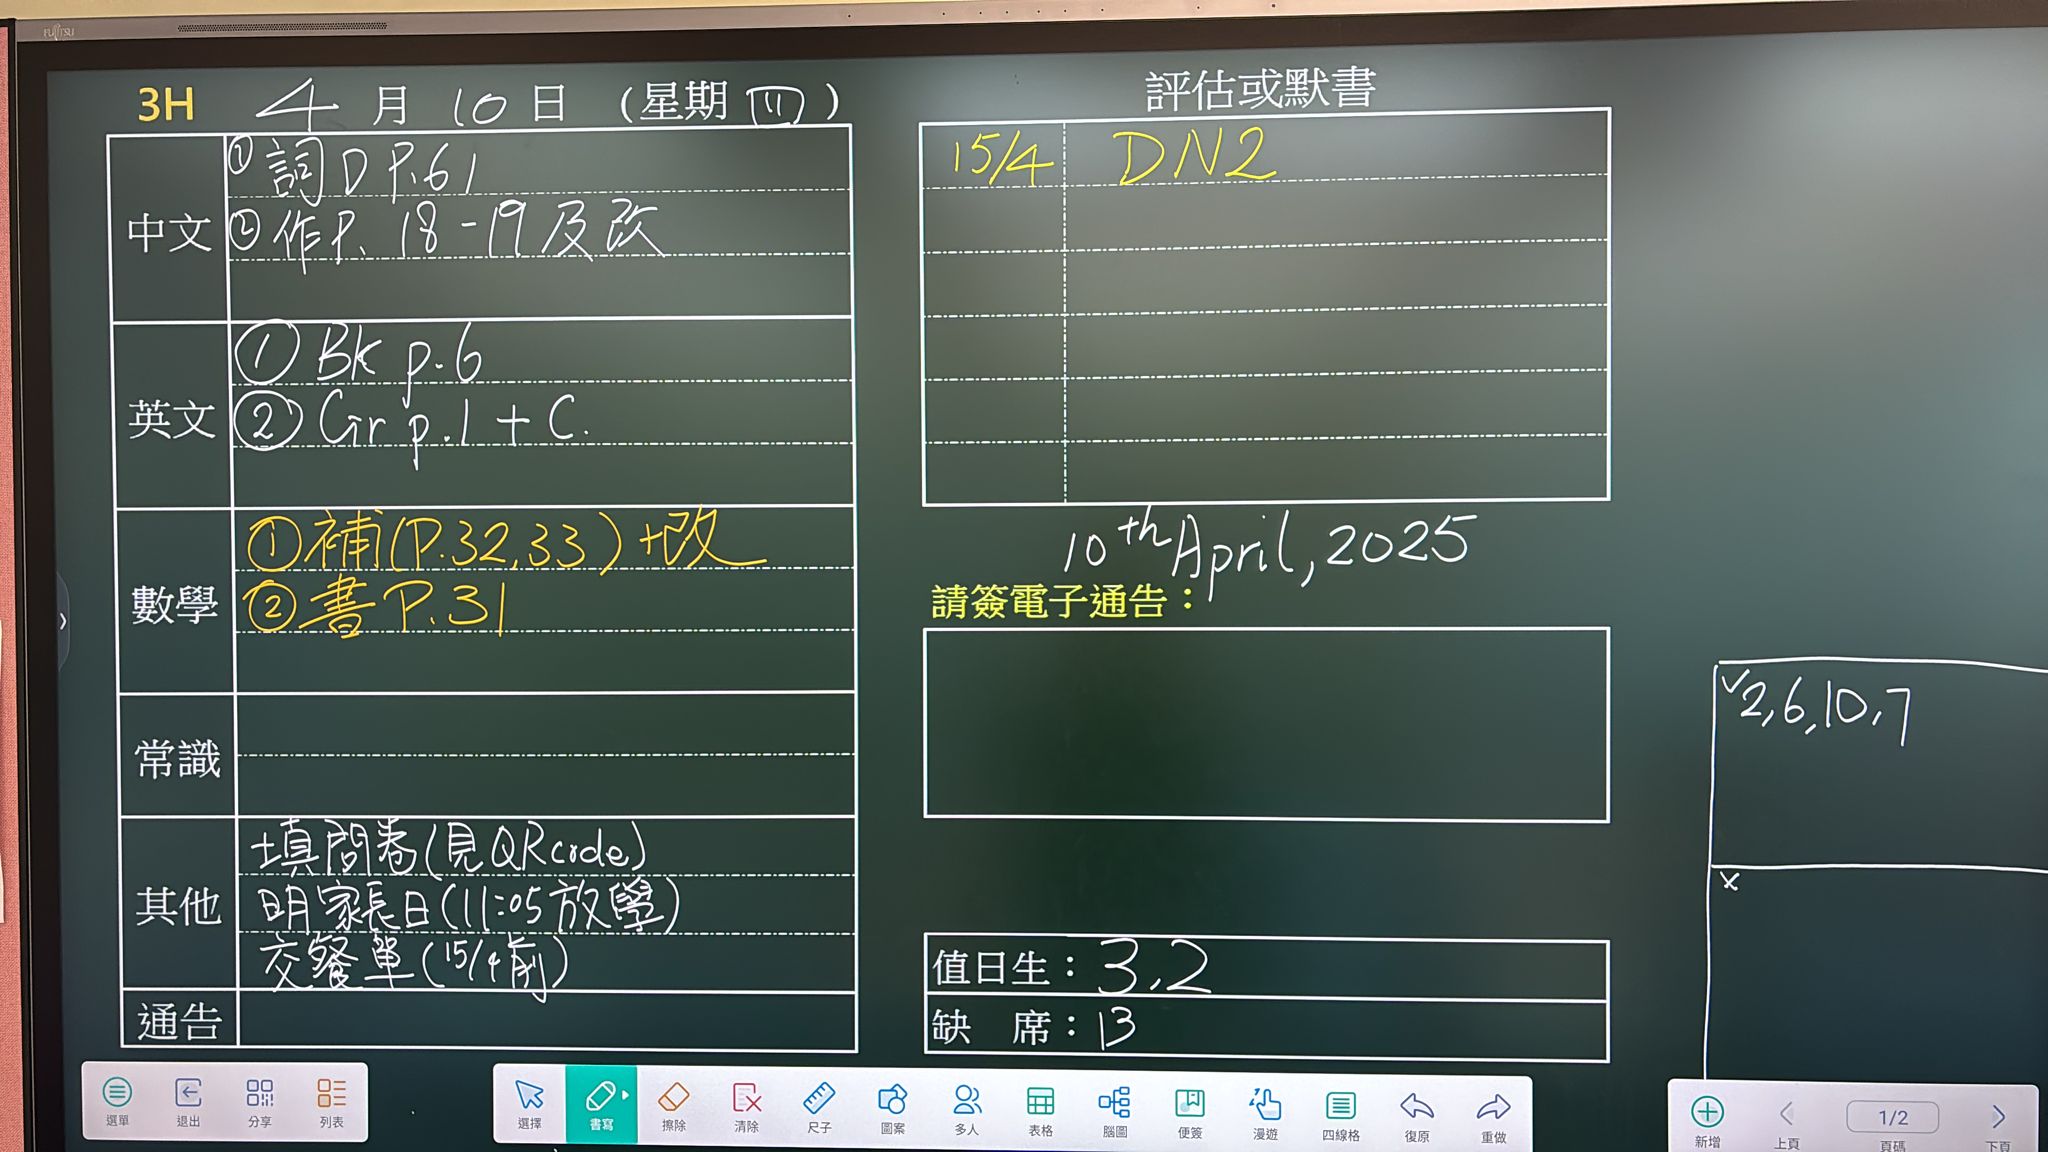 FUJITSU
3H 4月10日(星期四)
中文
①詞D P.61
②作P. 18-19及改
英文
① Bk p.6
② Gr p.1 + C.
數學
①補(P.32,33)+改
②書P.31
常識
其他
填問卷(見QRcode)
明家長日(11:05放學)
交餐單(15/4前)
通告
評估或默書
15/4 DN2
10th April, 2025
請簽電子通告：
值日生：3,2
缺 席：13
✓2,6,10,7
x
選單 退出 分享 列表
選擇 書寫 擦除 清除 尺子 圖案 多人 表格 腦圖 便簽 漫遊 四線格 復原 重做
新增 上頁 1/2 頁碼 下頁